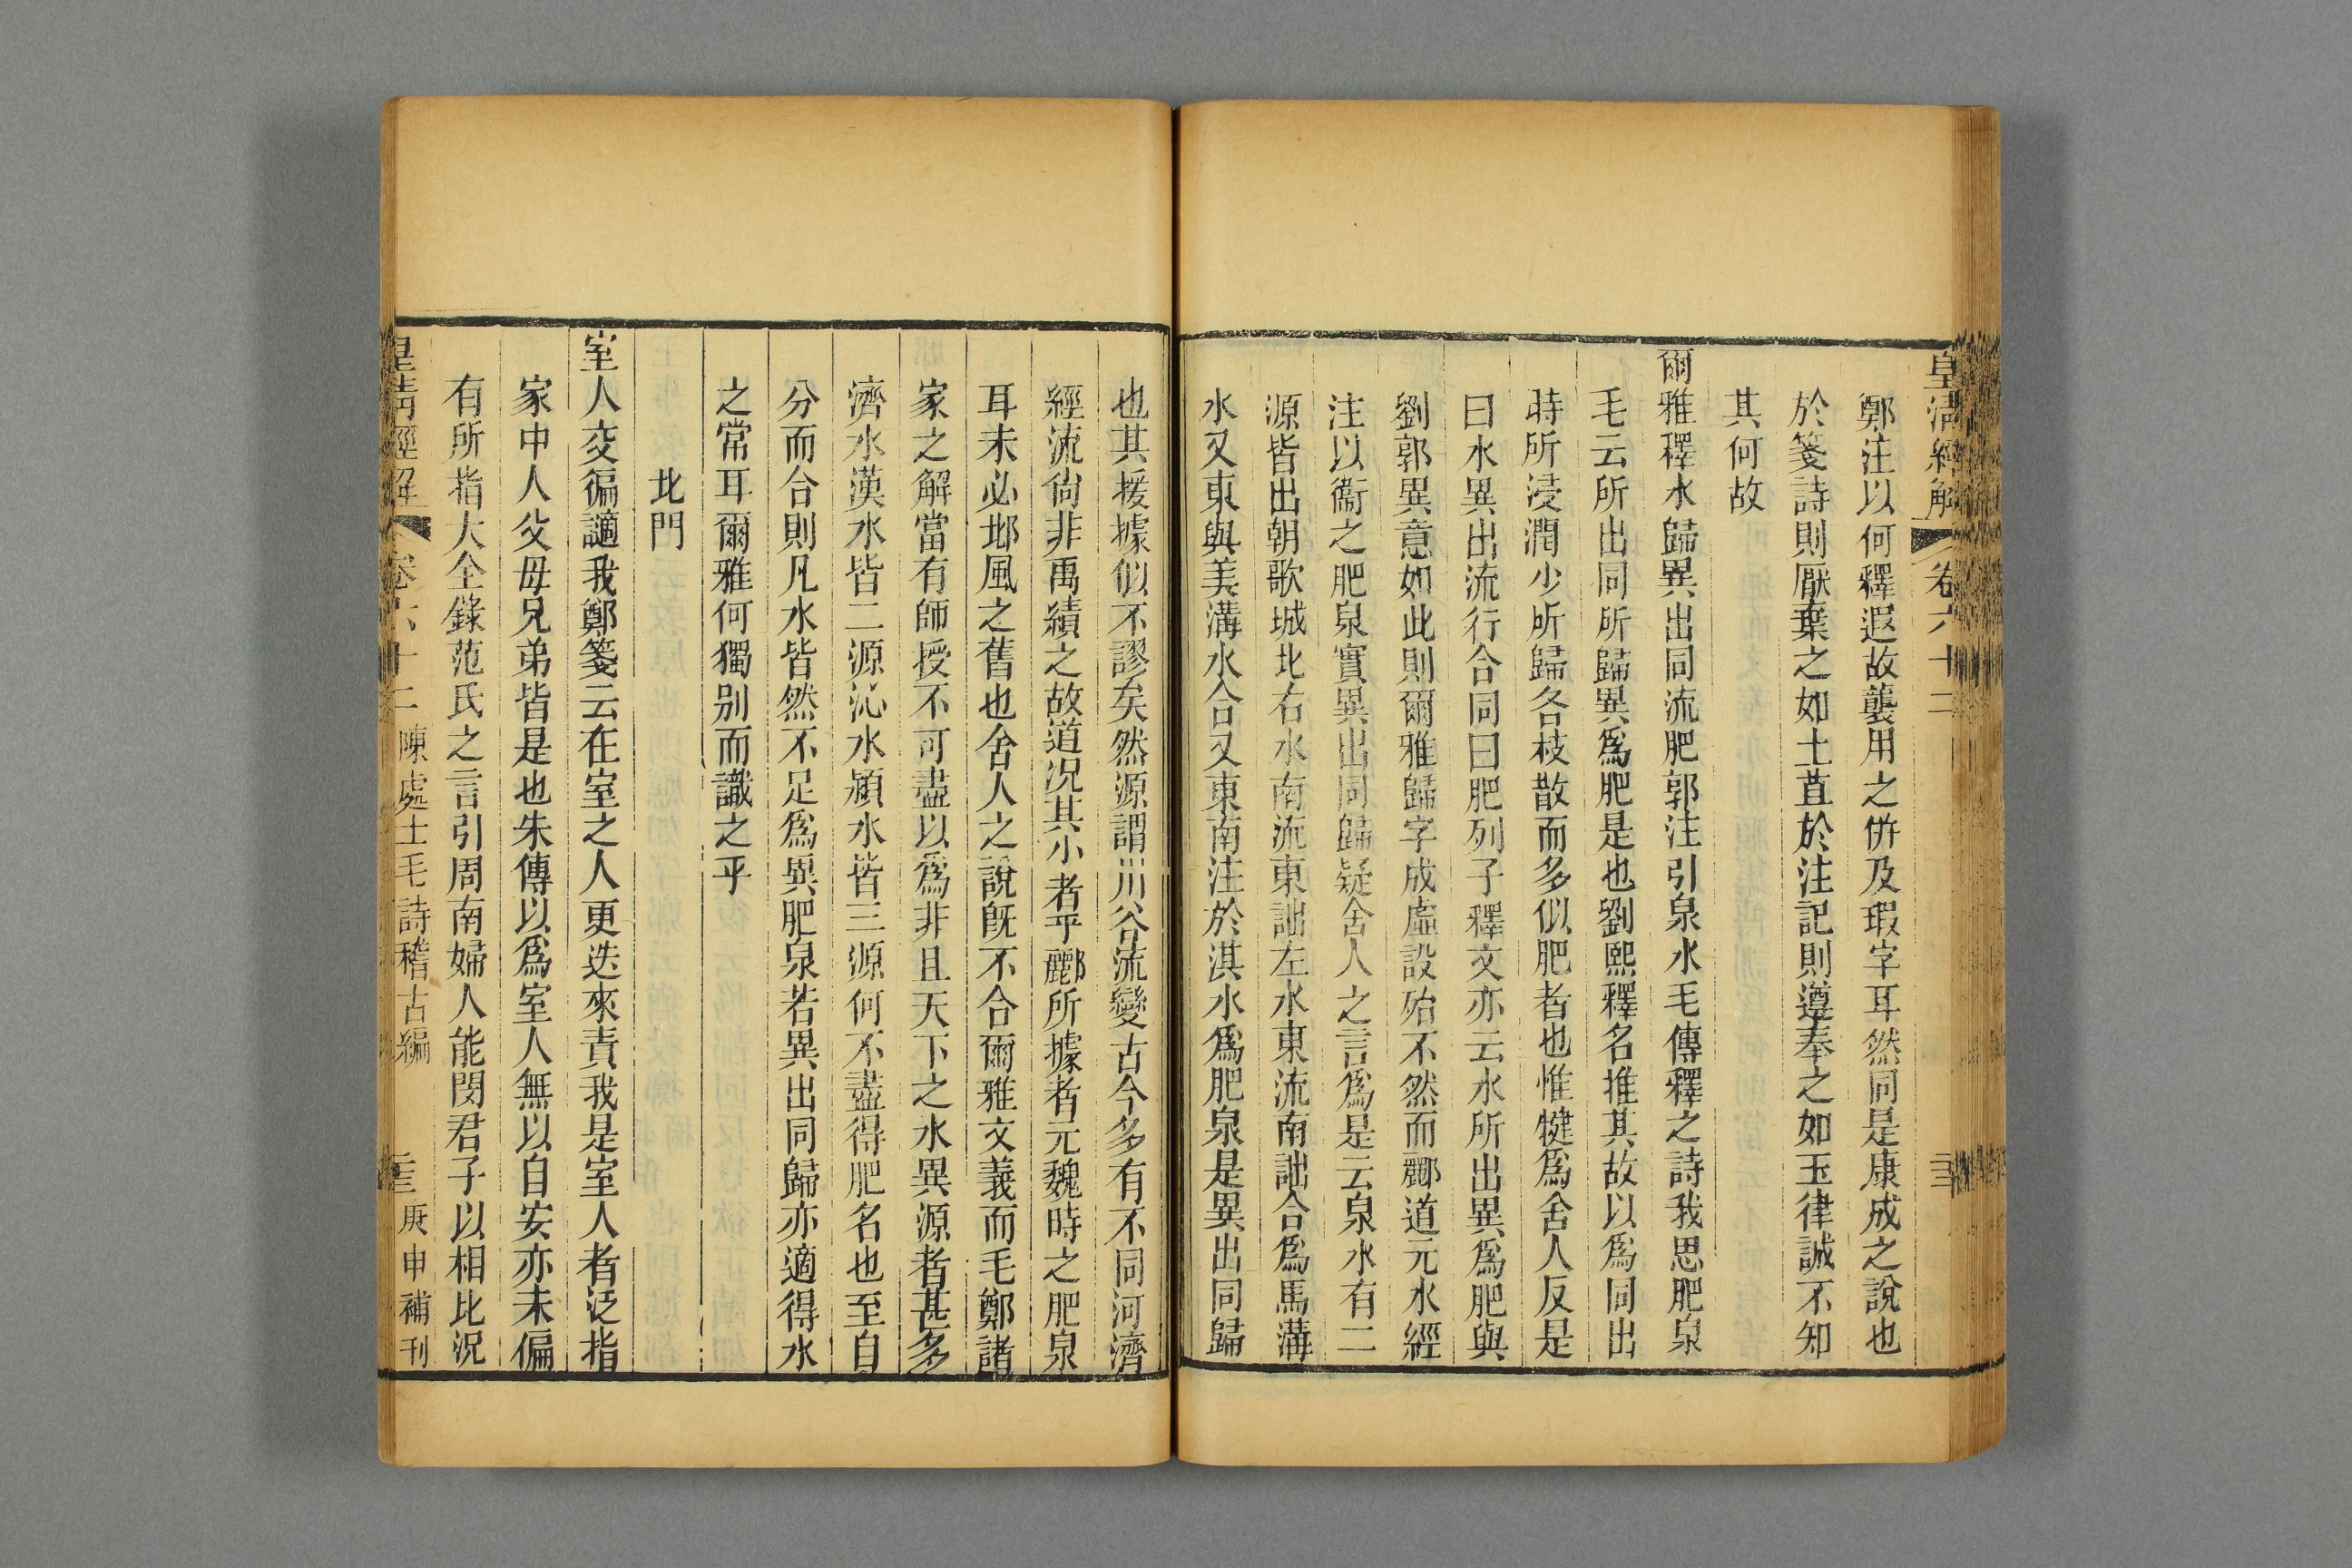 皇清經解 卷六十二 三
鄭注以何釋遐故襲用之倂及瑕字耳然同是康成之說也
於箋詩則厭棄之如土苴於注記則遵奉之如玉律誠不知
其何故
爾雅釋水歸異出同流肥郭注引泉水毛傳釋之詩我思肥泉
毛云所出同所歸異爲肥是也劉熙釋名推其故以爲同出
時所浸潤少所歸各枝散而多似肥者也惟犍爲舍人反是
曰水異出流行合同曰肥列子釋文亦云水所出異爲肥與
劉郭異意如此則爾雅歸字成虛設殆不然而酈道元水經
注以衞之肥泉實異出同歸疑舍人之言爲是云泉水有二
源皆出朝歌城北右水南流東詘左水東流南詘合爲馬溝
水又東與美溝水合又東南注於淇水爲肥泉是異出同歸
也其援據似不謬矣然源謂川谷流變古今多有不同河濟
經流尙非禹績之故道况其小者乎酈所據者元魏時之肥泉
耳未必邶風之舊也舍人之說旣不合爾雅文義而毛鄭諸
家之解當有師授不可盡以爲非且天下之水異源者甚多
濟水漢水皆二源沁水潁水皆三源何不盡得肥名也至自
分而合則凡水皆然不足爲異肥泉若異出同歸亦適得水
之常耳爾雅何獨别而識之乎
北門
室人交徧讁我鄭箋云在室之人更迭來責我是室人者泛指
家中人父母兄弟皆是也朱傳以爲室人無以自安亦未偏
有所指大全錄范氏之言引周南婦人能閔君子以相比况
皇清經解 卷六十二 陳處士毛詩稽古編 三 庚申補刊